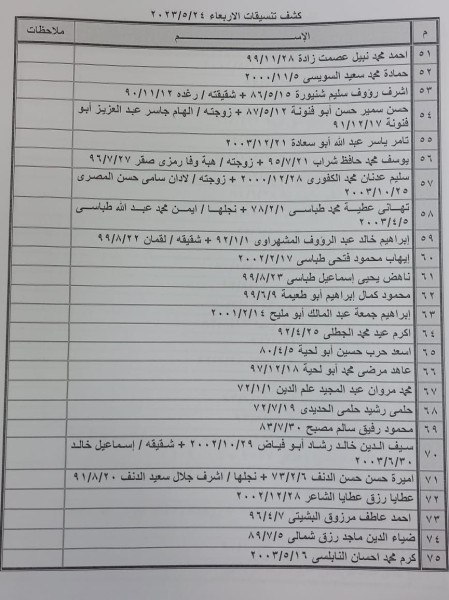 كشف تنسيقات الاربعاء ٢٠٢٣/٥/٢٤
م الإســـم ملاحظات
٥١ احمد محمد نبيل عصمت زادة ٩٩/١١/٢٨
٥٢ حمادة محمد سعيد السويسى ٢٠٠٠/١١/٥
٥٣ اشرف رؤوف سليم شنيورة ٨٦/٥/١٥ + شقيقته / رغده ٩٠/١١/١٢
٥٤ حسن سمير حسن أبو فنونة ٨٧/٥/١٢ + زوجته / الهام جاسر عبد العزيز أبو
فنونة ٩١/١٢/١٧
٥٥ تامر ياسر عبد الله أبو سعادة ٢٠٠٣/١٢/٢١
٥٦ يوسف محمد حافظ شراب ٩٥/٧/٢١ + زوجته / هبة وفا رمزى صقر ٩٦/٧/٢٧
٥٧ سليم عدنان محمد الكفورى ٢٠٠٠/١٢/٢٨ + زوجته / لادان سامى حسن المصرى
٢٠٠٣/١٠/٢٥
٥٨ تهانى عطية محمد طباسى ٧٨/٢/١ + نجلها / ايمن محمد عبد الله طباسى
٢٠٠٣/٤/٥
٥٩ إبراهيم خالد عبد الرؤوف المشهراوى ٩٢/١/١ + شقيقه / لقمان ٩٩/٨/٢٢
٦٠ إيهاب محمود فتحى طباسى ٢٠٠٢/٢/١٧
٦١ ناهض يحيى إسماعيل طباسى ٩٩/٨/٢٣
٦٢ محمود كمال إبراهيم أبو طعيمة ٩٩/٦/٩
٦٣ إبراهيم جمعة عبد المالك أبو مليح ٢٠٠١/٢/١٤
٦٤ اكرم عيد محمد الجطلى ٩٢/٤/٢٥
٦٥ اسعد حرب حسين أبو لحية ٨٠/٤/٥
٦٦ عاهد مرضى محمد أبو لحية ٩٧/١٢/١٨
٦٧ محمد مروان عبد المجيد علم الدين ٧٢/١/١
٦٨ حلمى رشيد حلمى الحديدى ٧٢/٧/١٩
٦٩ محمود رفيق سالم مصبح ٨٣/٧/٣٠
٧٠ سيف الدين خالد رشاد أبو فياض ٢٠٠٢/١٠/٢٩ + شقيقه / إسماعيل خالد
٢٠٠٣/٦/٣٠
٧١ اميرة حسن حسن الدنف ٧٣/٢/٦ + نجلها / اشرف جلال سعيد الدنف ٩١/٨/٢٠
٧٢ عطايا رزق عطايا الشاعر ٢٠٠٢/١٢/٢٨
٧٣ احمد عاطف مرزوق البشيتى ٩٦/٤/٧
٧٤ ضياء الدين ماجد رزق شمالى ٨٩/٧/٥
٧٥ كرم محمد احسان النابلسى ٢٠٠٣/٥/١٦